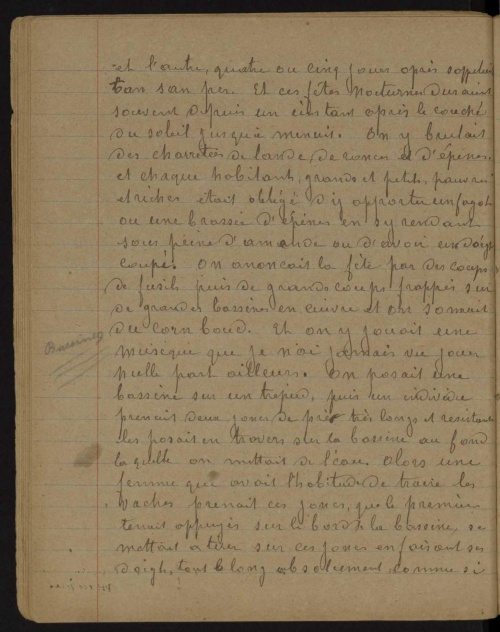 et l'autre, quatre ou cinq jours après s'appelait
tan san per. Et ces fêtes nocturnes duraient
souvent depuis un instant après le couché
du soleil jusqu'à minuit. On y brulait
des charretées de lande, de ronces et d'épines
et chaque habitant, grands et petits, pauvres
et riches était obligé d'y apporter un fagot
ou une brassée d'épines en s'y rendant
sous peine d'amande ou d'avoir un doigt
coupé. On anoncait la fête par des coups
de fusils puis de grands coups frappés sur
de grandes bassines en cuivre et on sonnait
du corn boud. Et on y jouait une
Bassines
musique que je n'ai jamais vu jouer
nulle part ailleurs. On posait une
bassine sur un trepied, puis un individu
prenait deux joncs de pré très longs et resistants
les posait en travers sur la bassine au fond
laquelle on mettait de l'eau. Alors une
femme que avait l'habitude de traire les
vaches prenait ces joncs, que le premier
tenait appuyés sur le bord de la bassine, se
mettait a tirer sur ces joncs en faisant ses
doigts, tout le long absolument comme si